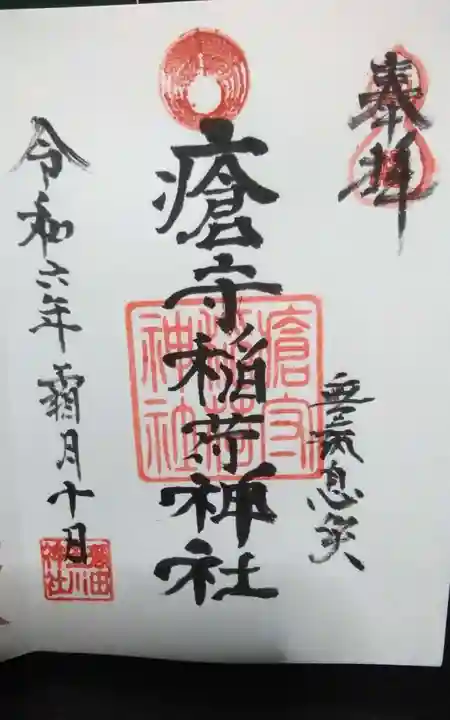 奉拝
無病息災
瘡守稲荷神社
瘡守
稲荷
神社
令和六年霜月十日